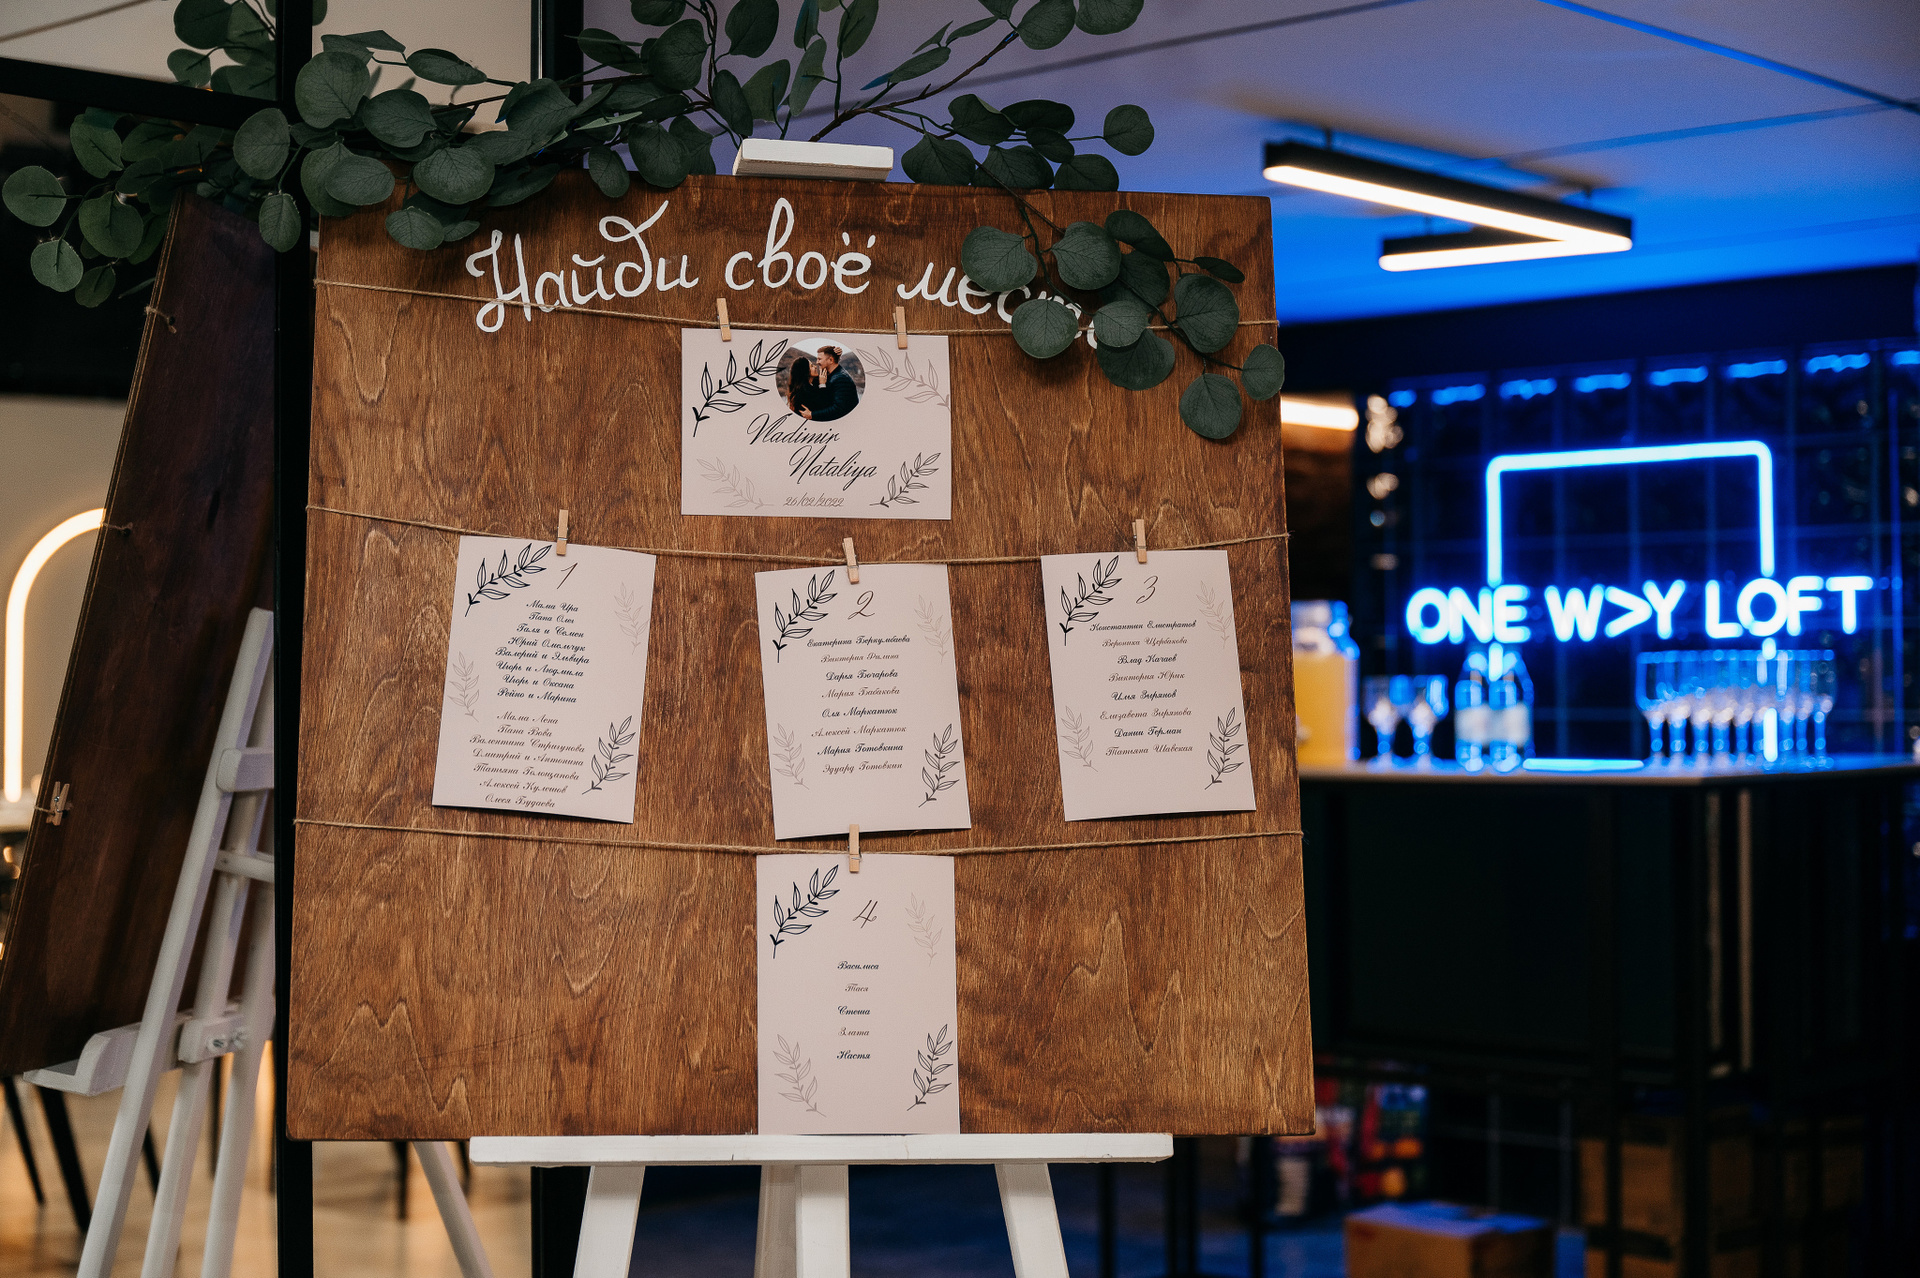 Найди своё место
Vladimir
Nataliya
26/02/2022
1
Мама Ира
Папа Олег
Галя и Семен
Юрий Омельчук
Валерий и Эльвира
Игорь и Людмила
Игорь и Оксана
Рейно и Марина
Мама Лена
Папа Вова
Валентина Стригунова
Дмитрий и Антонина
Татьяна Голощапова
Алексей Кулешов
Олеся Будаева
2
Екатерина Беркумбаева
Виктория Филина
Дарья Бочарова
Мария Бабакова
Оля Маркатюк
Алексей Маркатюк
Мария Готовкина
Эдуард Готовкин
3
Константин Елистратов
Вероника Щербакова
Влад Качаев
Виктория Юрик
Илья Зырянов
Елизавета Зырянова
Данил Герман
Татьяна Шавская
4
Василиса
Тася
Стеша
Злата
Настя
ONE W>Y LOFT